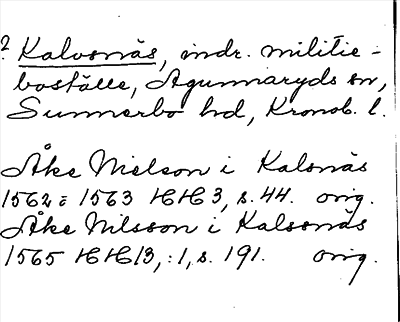 ? Kalvsnäs, indr. militie-
boställe, Agunnaryds sn,
Sunnerbo hd, Kronob. l.
Åke Nielson i Kalsnäs
1562 = 1563 HH 3, s. 44. orig.
Åke Nilsson i Kalssnäs
1565 HH 13,:1, s. 191. orig.